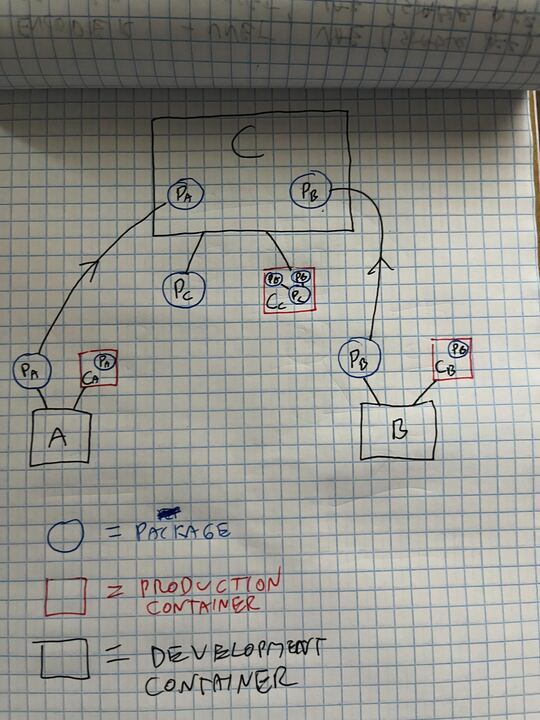 C
PA
PB
PC
PA
PB
CC
PC
PA
PA
CA
PB
PB
CB
A
B
= PACKAGE
= PRODUCTION
CONTAINER
= DEVELOPMENT
CONTAINER